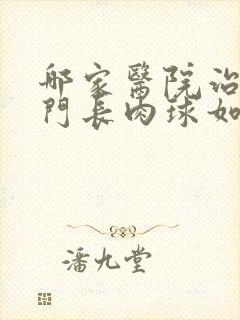 哪家醫院治
門長肉球如
潘九堂